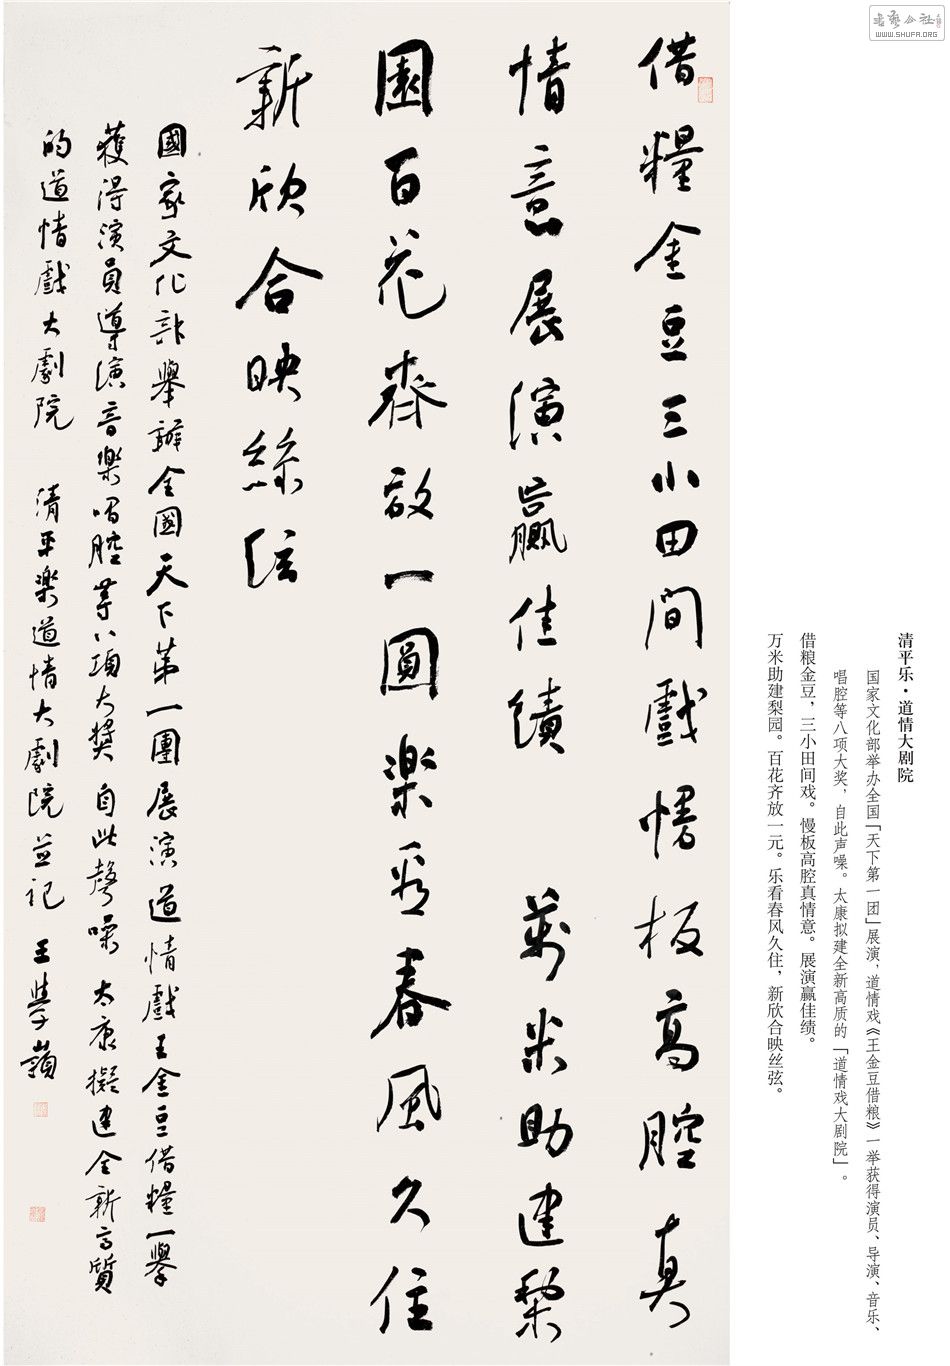 書藝公社
WWW.SHUFA.ORG
清平乐·道情大剧院
国家文化部举办全国「天下第一团」展演，道情戏《王金豆借粮》一举获得演员、导演、音乐、
唱腔等八项大奖，自此声噪。太康拟建全新高质的「道情戏大剧院」。
借粮金豆，三小田间戏。慢板高腔真情意。展演赢佳绩。
万米助建梨园。百花齐放一元。乐看春风久住，新欣合映丝弦。
借糧金豆三小田間戲慢板高腔真
情意展演贏佳績 萬米助建梨
園百花齊放一圓樂看春風久住
新欣合映絲弦
國家文化部舉辦全國天下第一團展演道情戲王金豆借糧一舉
獲得演員導演音樂唱腔等八項大獎自此聲噪太康擬建全新高質
的道情戲大劇院 清平樂道情大劇院並記 王學嶺